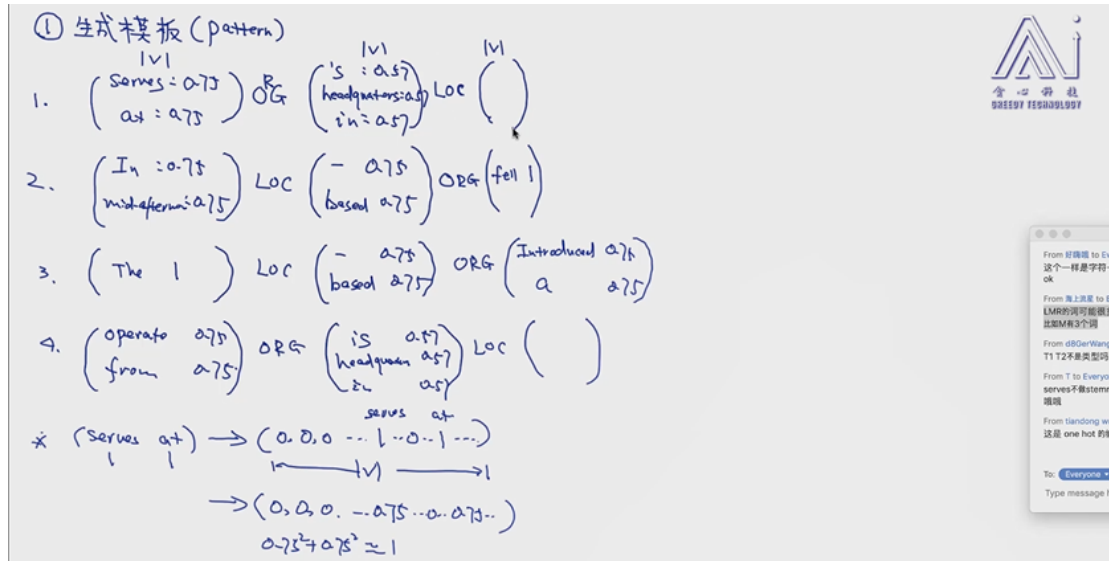 ① 生成模板(pattern)
|V| |V| |V|
1. (serves: 0.75 at: 0.75) ORG (is: 0.57 headquaters: 0.57 in: 0.57) LOC ( )
2. (In: 0.75 mid-afternoon: 0.75) LOC (- 0.75 based 0.75) ORG (fell 1)
3. (The 1) LOC (- 0.75 based 0.75) ORG (Introduced 0.75 a 0.75)
4. (operate 0.75 from 0.75) ORG (is 0.57 0.57 in 0.57) LOC ( )
serves at
* (serves at) → (0.0.0 --- 1 --0-- 1 ---)
1 1
|V|
→ (0,0,0. --0.75--0--0.75--)
0.75²+0.75² ≃ 1
贪心科技
GREEDY TECHNOLOGY
From 好嗨哦 to Ev
这个一样是字符
ok
From 海上流星 to E
LMR的词可能很
比如M有3个词
From dBGerWang
T1 T2不是类型吗
From T to Everyo
serves不做stemm
哦哦
From tiandong w
这是 one hot 的
To: Everyone
Type message h